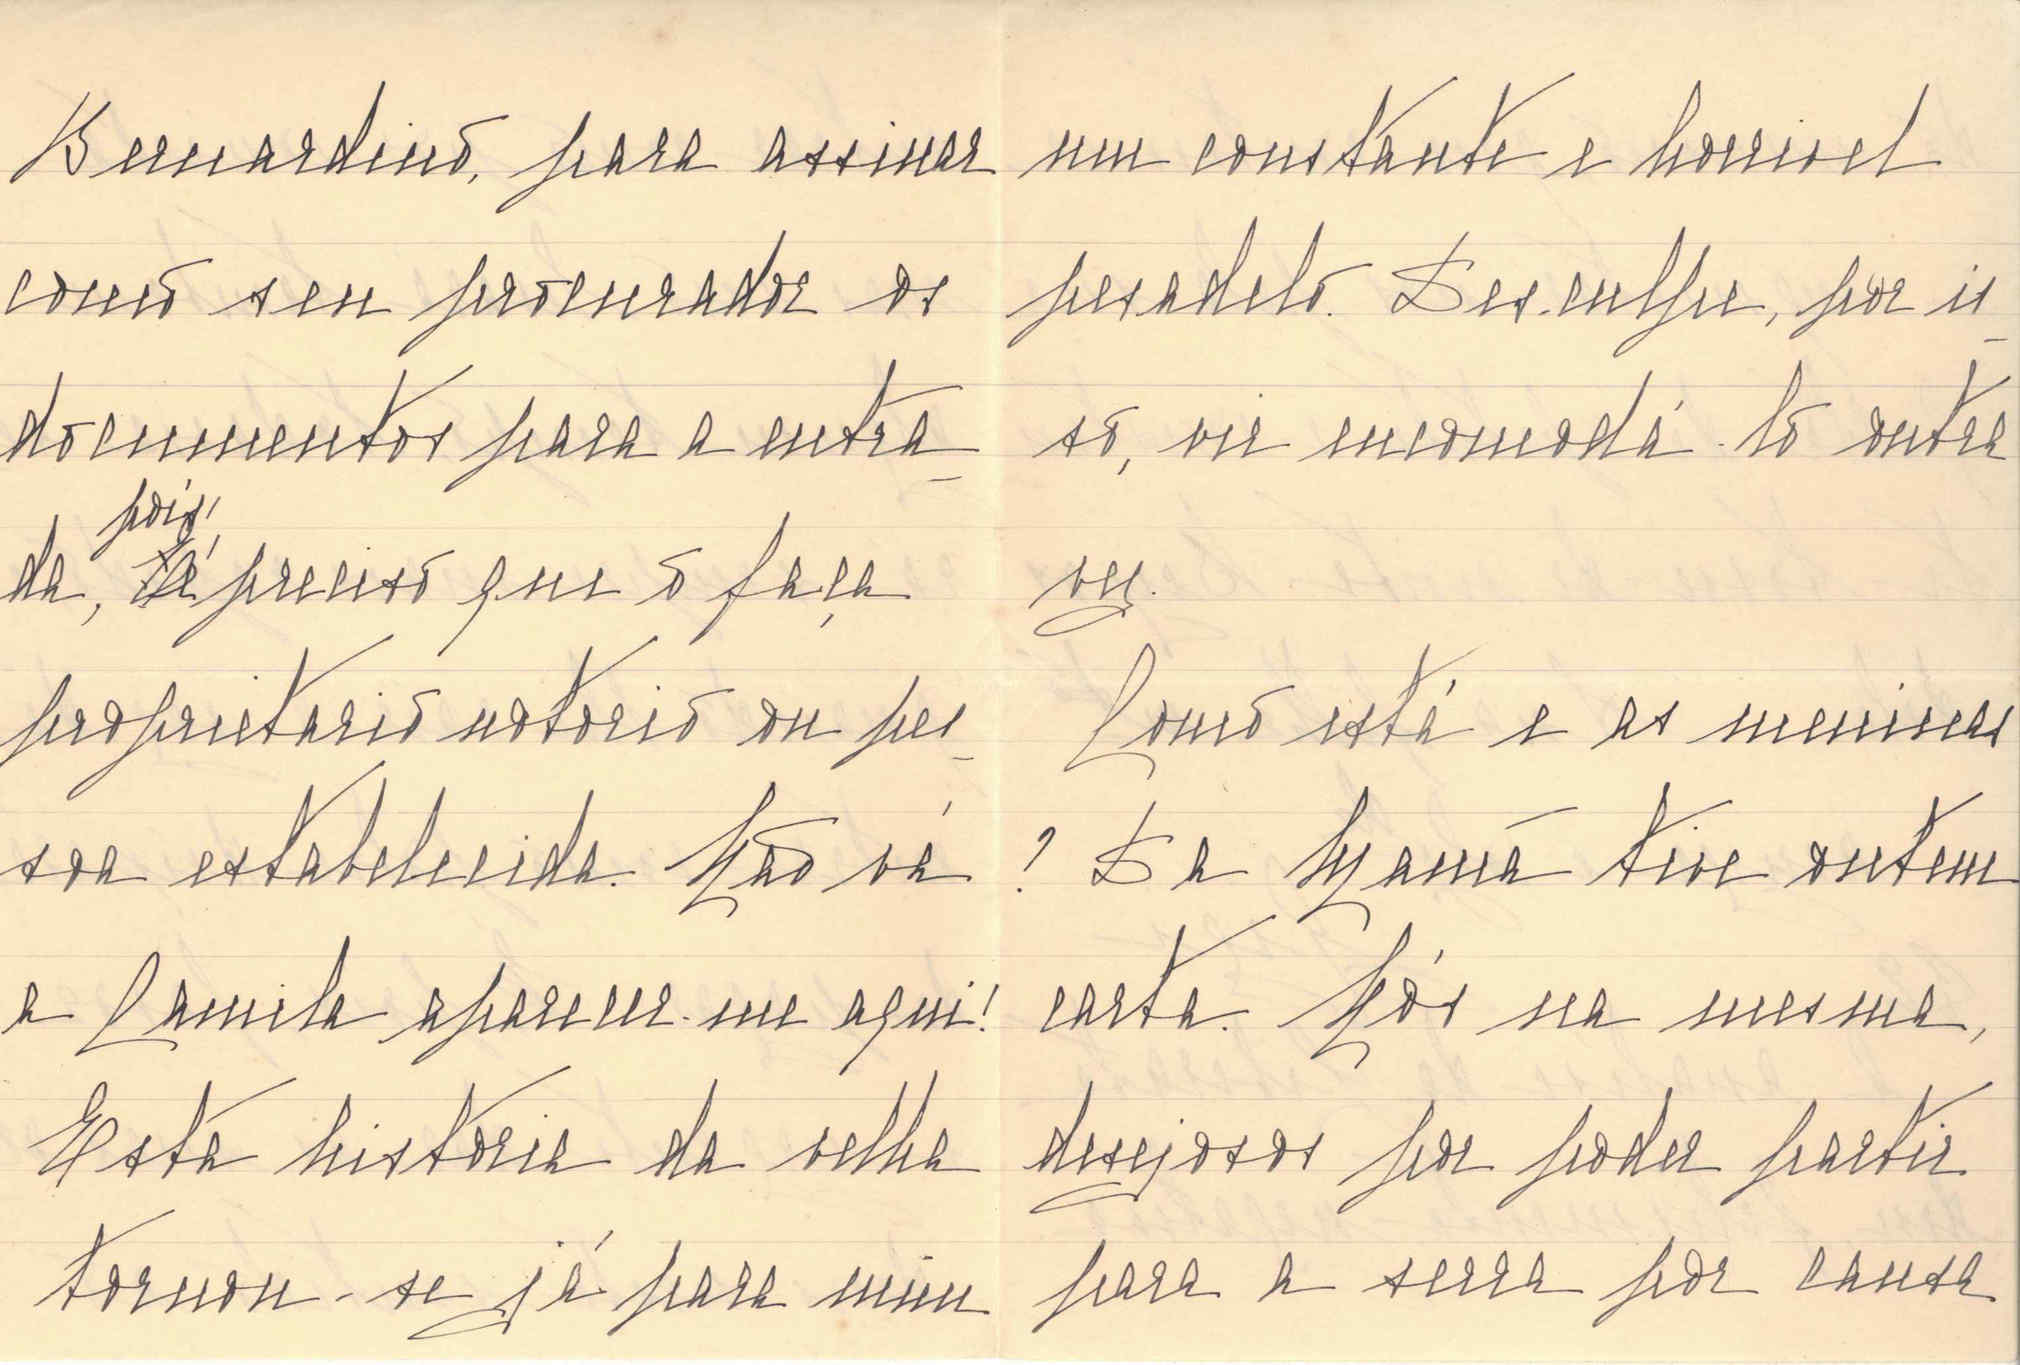 Bernardino, para assinar
como seu procurador os
documentos para a entra-
pois,
da, é preciso que o faça
proprietario notorio ou pes-
soa estabelecida. Não vá
a Camila aparecer-me aqui!
Esta historia da velha
tornou-se já para mim
um constante e horrivel
pesadelo. Desculpe, por is-
so, vir incomodá-lo outra
vez.
Como está e as meninas
? Da Mamã tive ontem
carta. Nós na mesma,
desejosos por poder partir
para a serra por causa